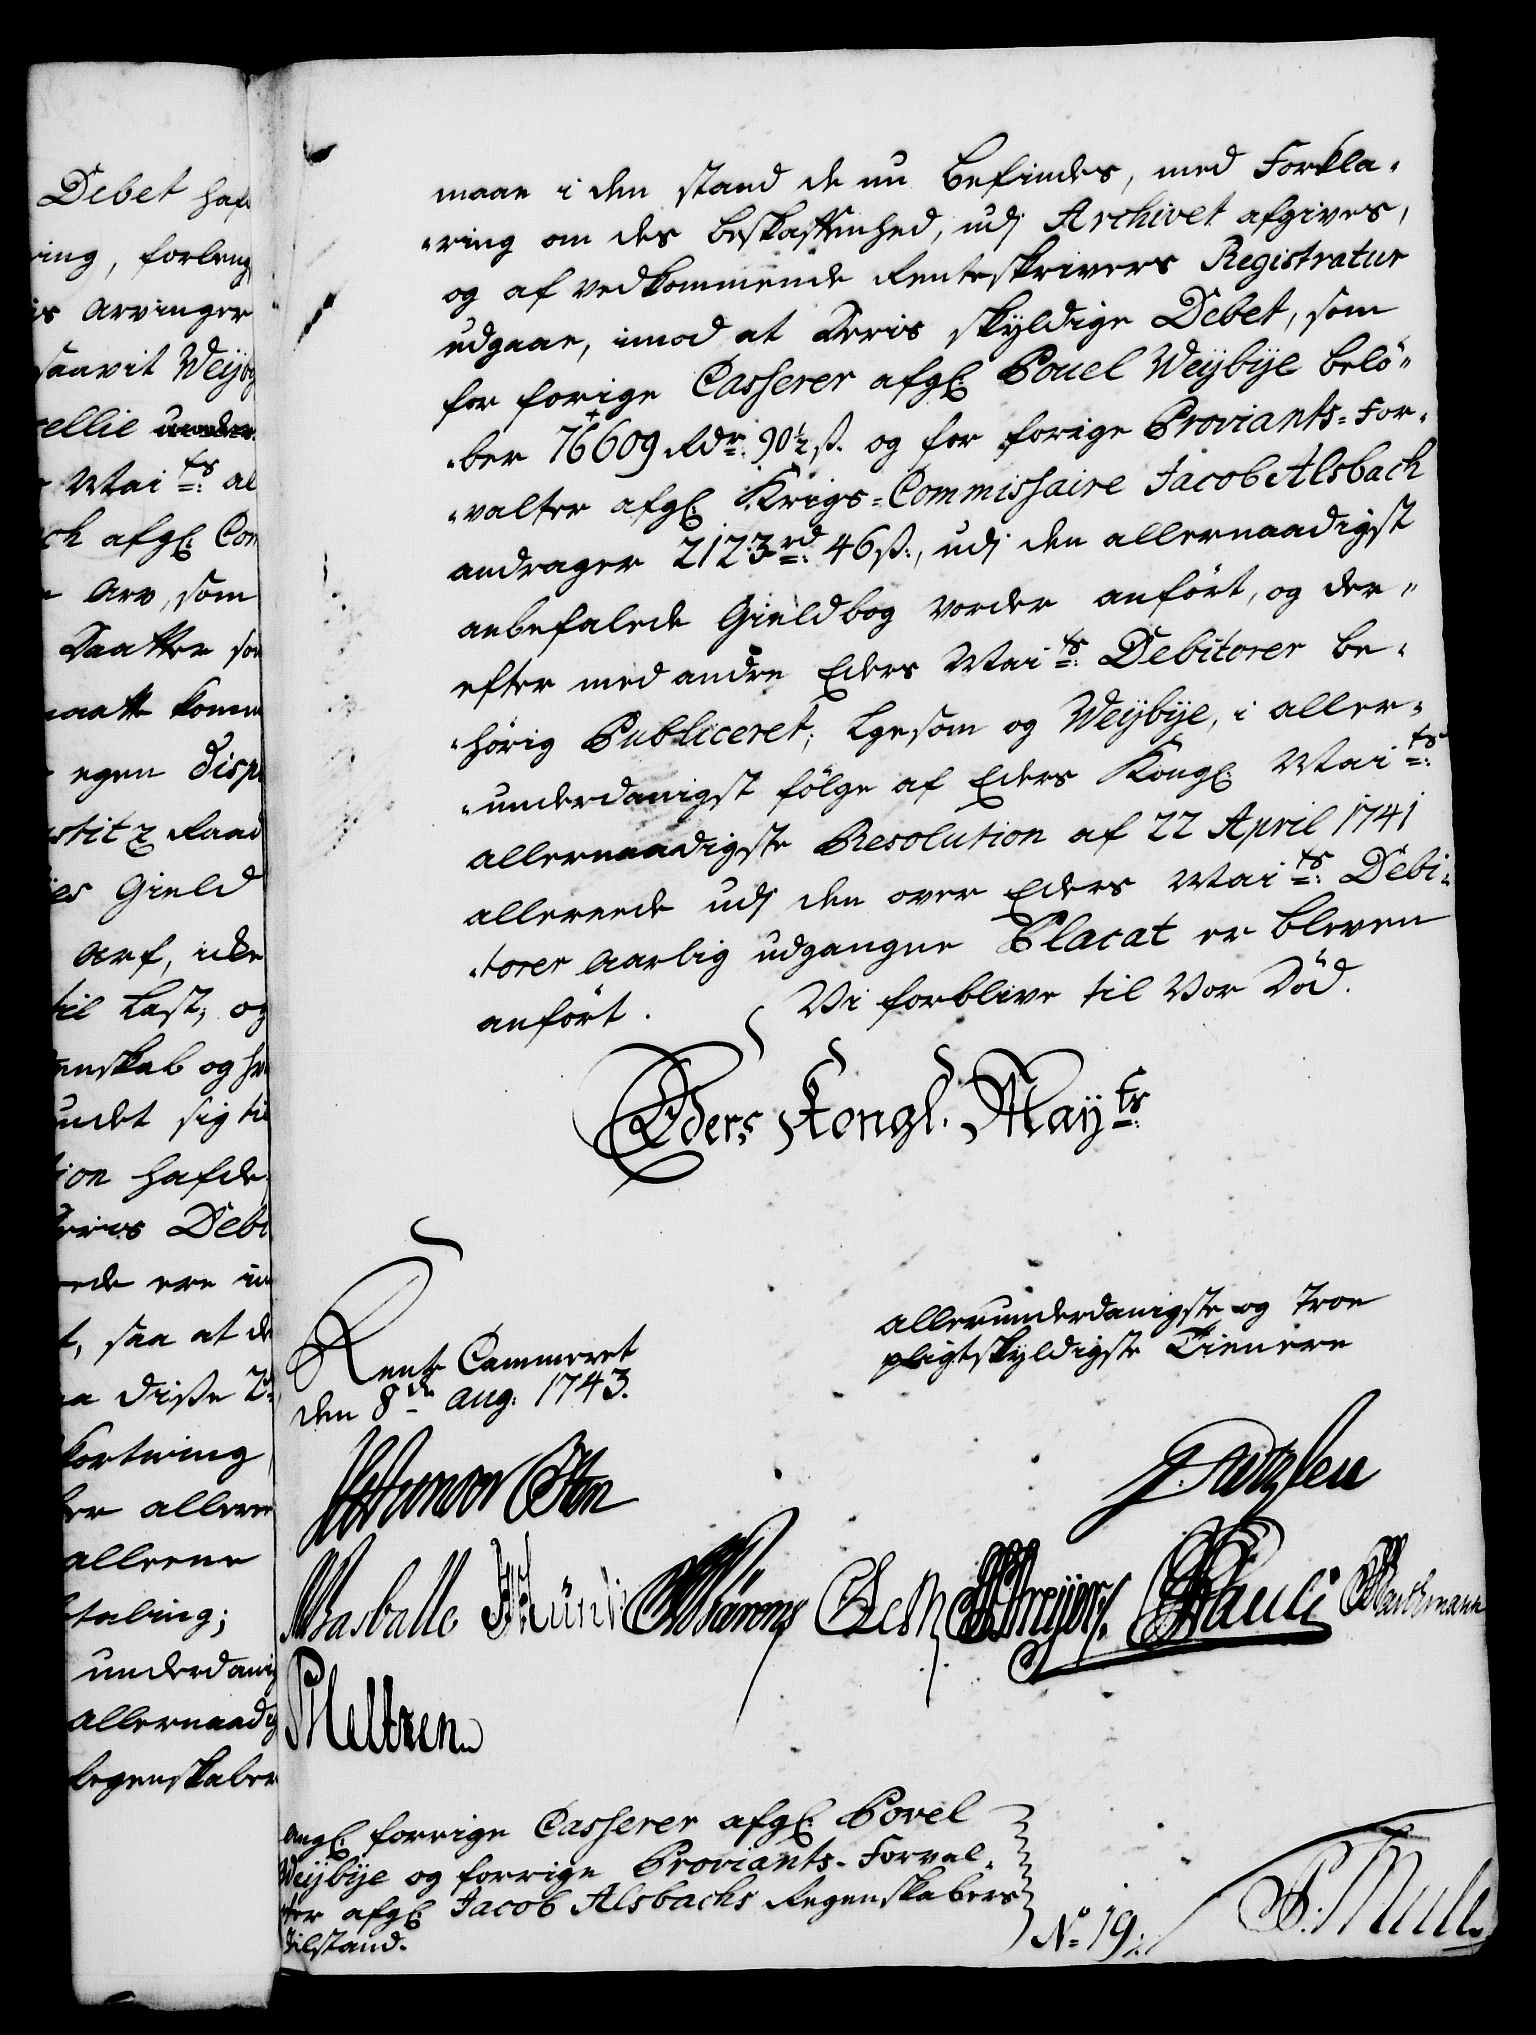 Debet haf
ring, forleng
is Arvinger
saavit Weyby
cellie under
Mai ts al
ch afgl. Com
Arv, som
Saatter som
maatte komm
egen disp
ustitz Raad
ies Gield
Arf, icke
til Last; og
enskab og hv
undet sig til
tion hafde
Debi
ede ere in
t, saa at de
a disse 2de
kortning
er aller
allerene
taling;
underdanig
allernaadig
Regenskaber
maae i den stand de nu befindes, med Forkla-
-ring om des beskaffenhed, udj Archivet afgives,
og af vedkommende Renteskrivers Registratur
udgaae, imod at deris skyldige Debet, som
for forige Casserer afgl. Pouel Weybÿe belö-
-ber 76609 Rdr. 90½ ß. og for forige Proviants-For-
-valter afgl. Krigs-Commissaire Jacob Alsbach
andrager 2123 rd. 46 ß., udj den allernaadigst
anbefalede Gieldbog vorder anfört, og der-
efter med andre Eders Mai ts Debitorer be-
-hörig Publiceret; Lgesom og Weÿbÿe, i aller-
-underdanigst fölge af Eders Kongl. Mai ts
allernaadigste Resolution af 22 April 1741
allereede udj den over Eders Mai ts Debi-
-torer Aarlig udgangne Placat er bleven
anfört. Vi forblive til Vor Död.
Eders Kongl. Maÿ ts
allerunderdanigste og troe
pligtskyldigste Tienere
Rente Cammeret
den 8 de Aug: 1743.
Masballe
Pauli
Meltzen
Angl. forrige Casserer afgl. Povel
Weÿbÿe og forrige Proviants-Forval-
-ter afgl. Jacob Alsbachs Regenskabers
Tilstand.
No 19.